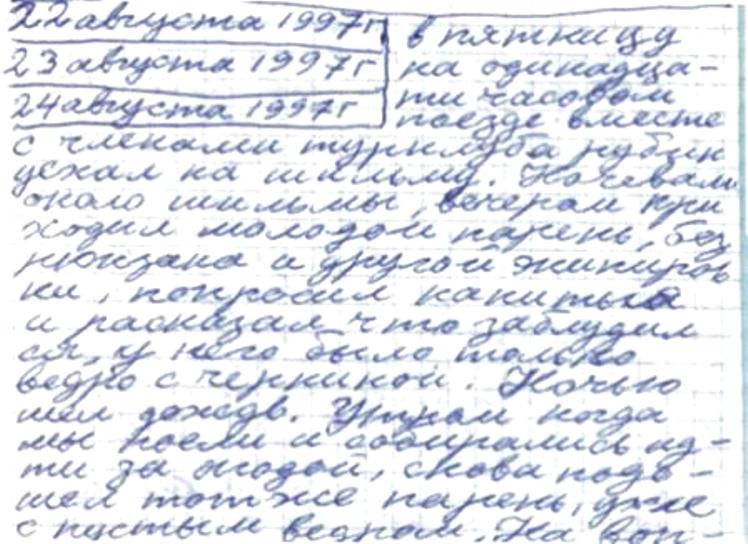 22 августа 1997г
23 августа 1997г
24 августа 1997г
в пятницу
на одинадца-
ти часовом
поезде вместе
с членами турклуба рубин
уехал на шильму. Ночевали
около шильмы, вечером при
ходил молодой парень, без
рюкзака и другой экипиров
ки, попросил напиться
и расказал что заблудил
ся, у него было только
ведро с черникой. Ночью
шел дождь. Утром когда
мы поели и собирались ид-
ти за ягодой, снова подо-
шел тот же парень, уже
с пустым ведром. На воп-